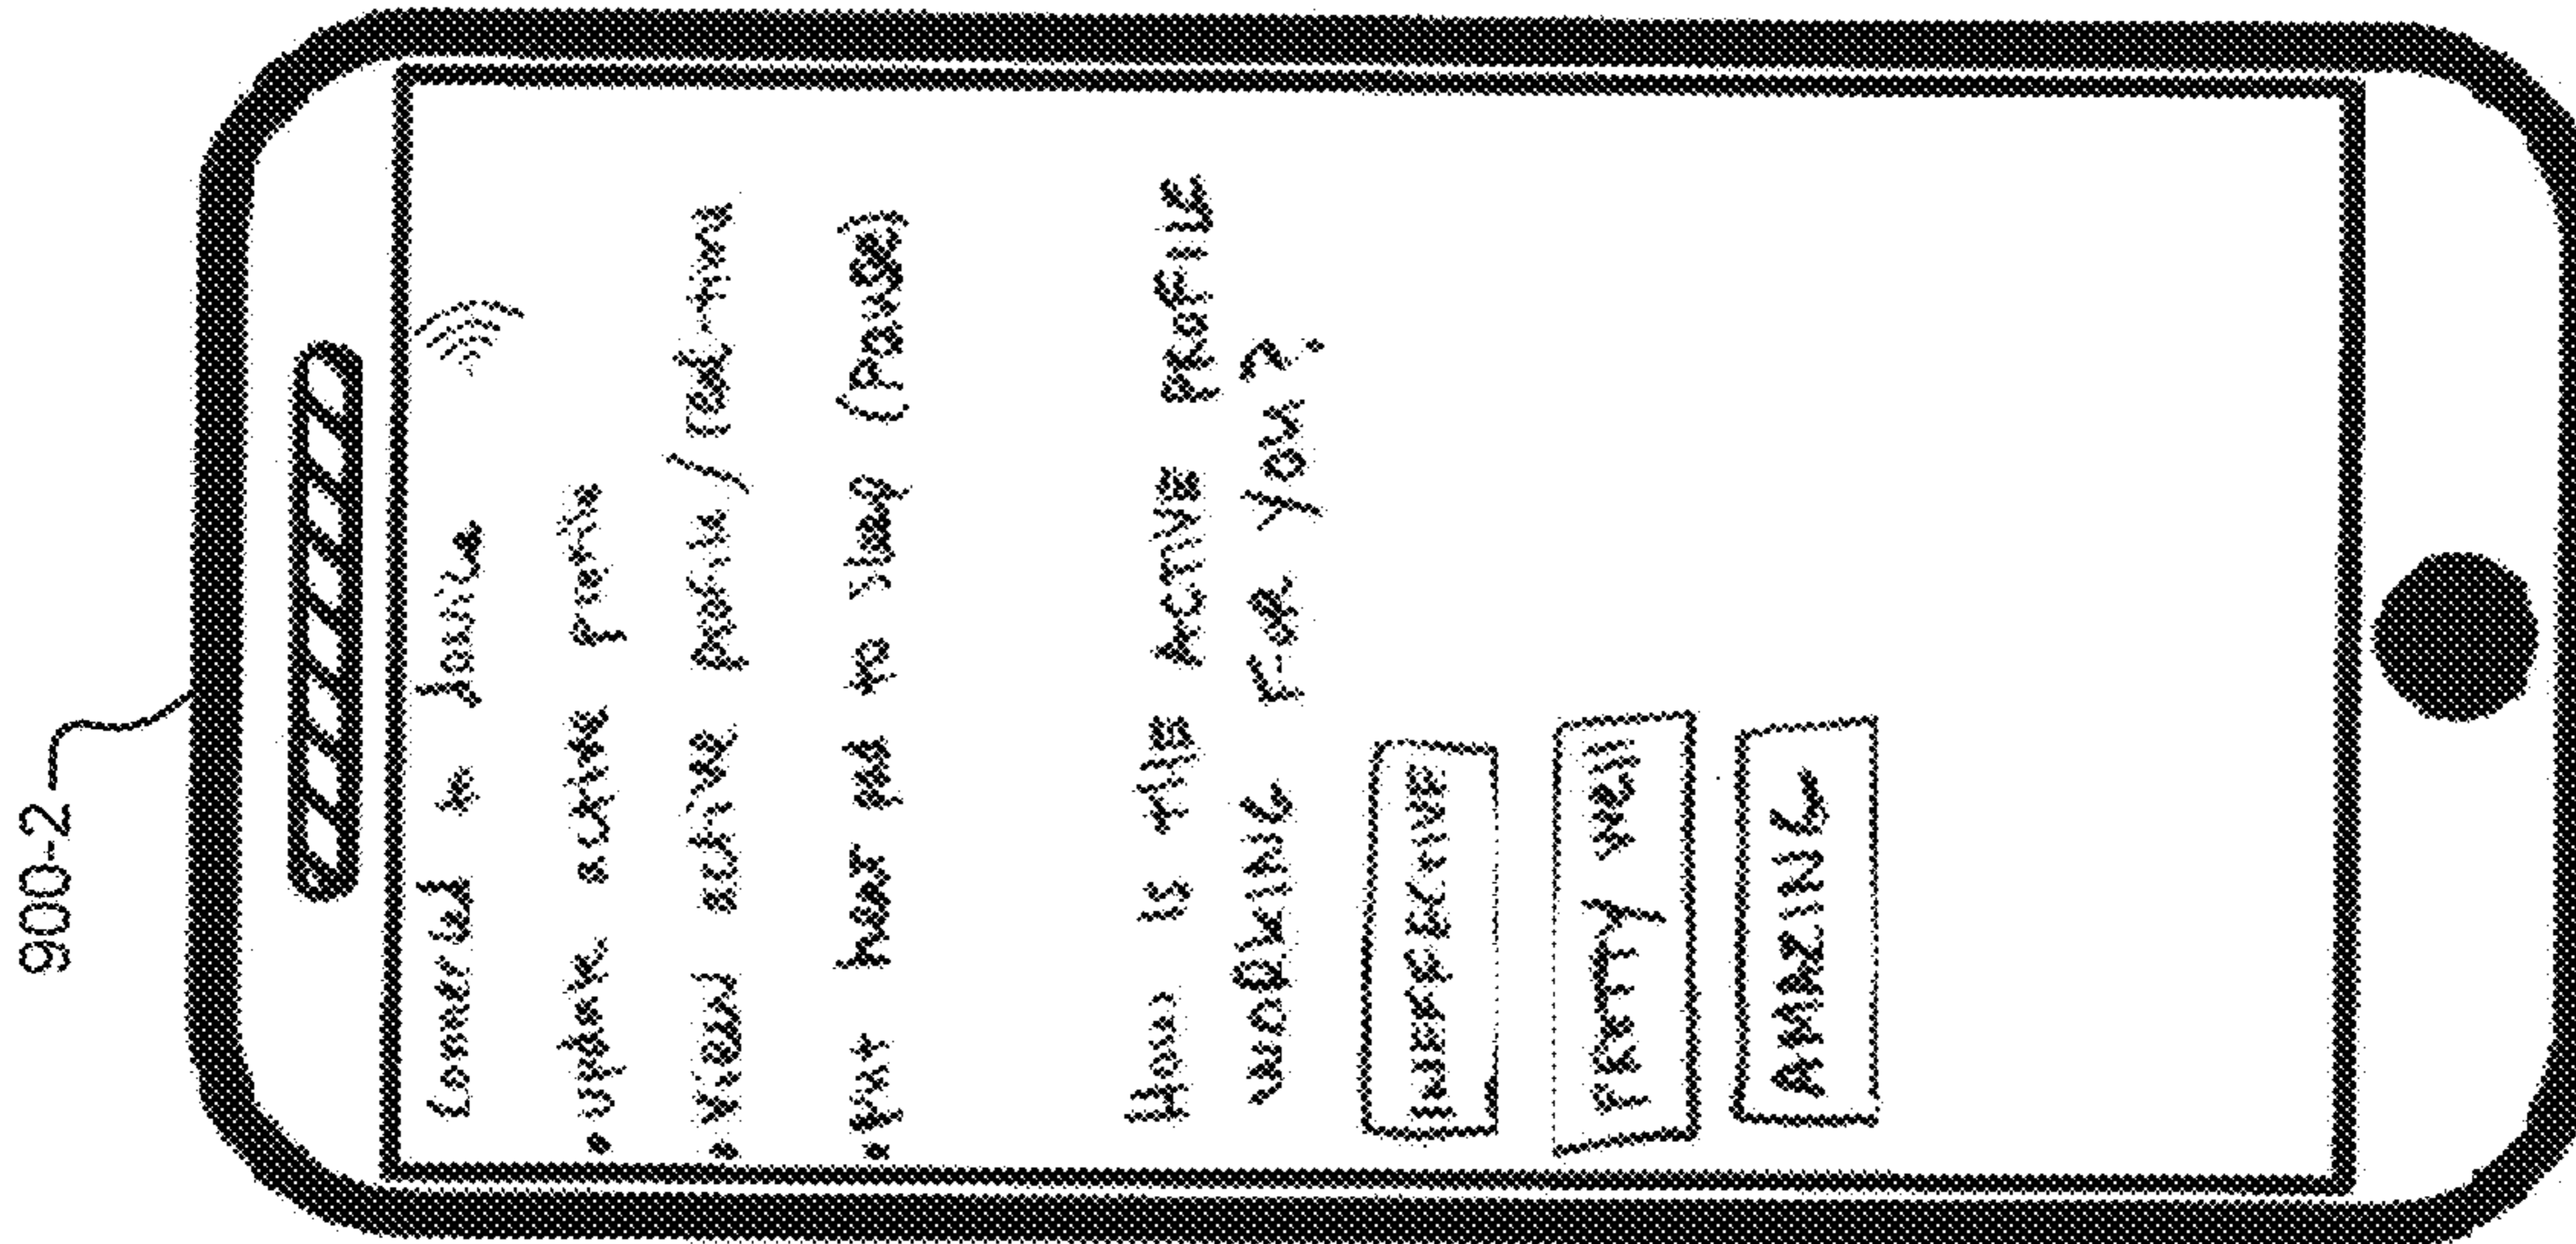 900-2
Connected to
• update active profile
• View active profile / real-time
• put heat pad to sleep (Pause)
How is this Active profile
working For you?
INEFFECTIVE
Pretty well
AMAZING